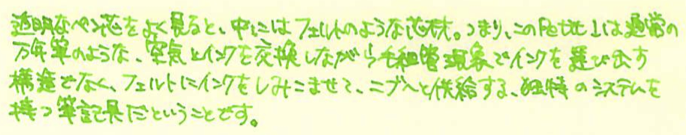 透明なペン芯をよく見ると、中にはフェルトのような芯材。つまり、このPetit 1は通常の
万年筆のような、空気とインクを交換しながら毛細管現象でインクを運び出す
構造でなく、フェルトにインクをしみこませて、ニブへと供給する、独特のシステムを
持つ筆記具だということです。